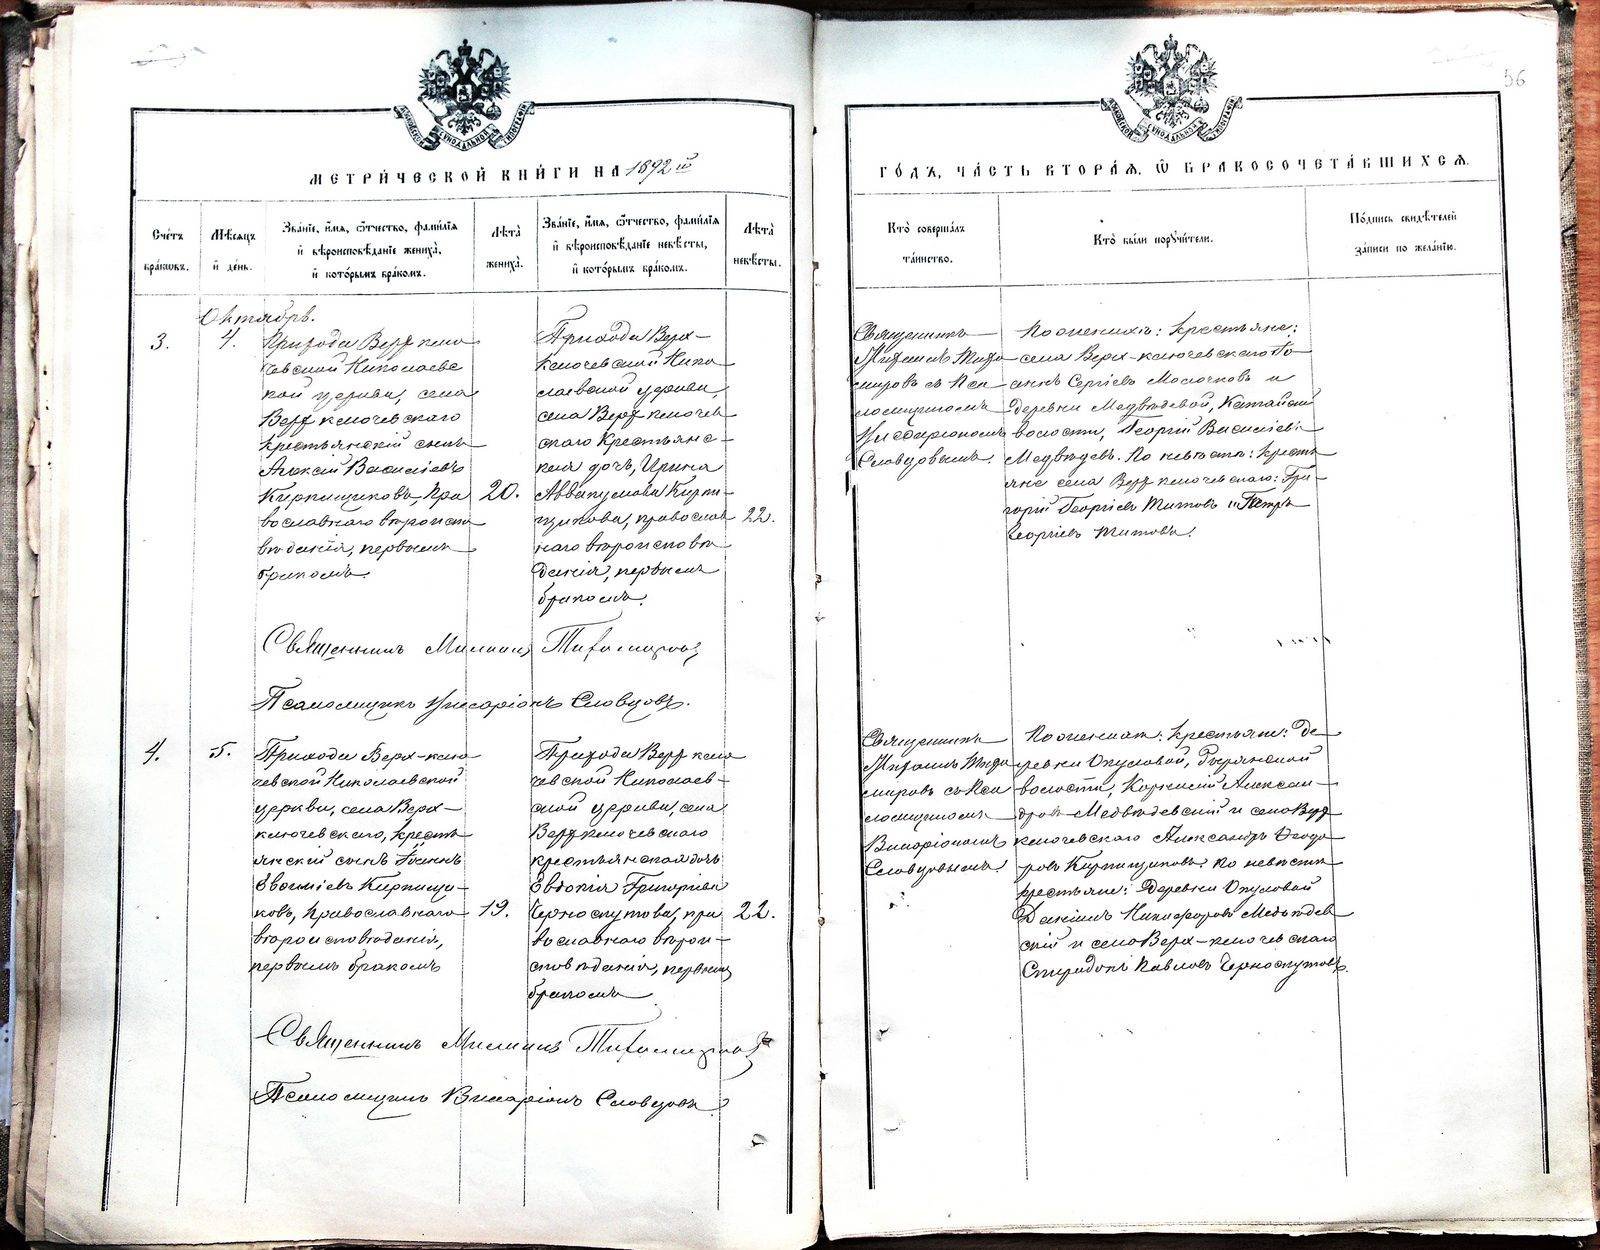 56
МЕТРИЧЕСКОЙ КНИГИ НА 1892 й
ГОДЪ, ЧАСТЬ ВТОРАЯ, Ѿ БРАКОСОЧЕТАВШИХСЯ.
Счетъ
браковъ.
Мѣсяцъ
и день.
Званіе, имя, ѿтчество, фамилія
и вѣроисповѣданіе жениха,
и которымъ бракомъ.
Лѣта
жениха.
Званіе, имя, ѿтчество, фамилія
и вѣроисповѣданіе невѣсты,
и которымъ бракомъ.
Лѣта
невѣсты.
Кто совершалъ
таинство.
Кто были поручители.
Подпись свидѣтелей
записи по желанію.
Октябрь.
3.
4.
Прихода Верхклю
чевской Николаевс
кой церкви, села
Верхключевскаго
крестьянскій сынъ
Алексій Василіевъ
Кирпищиковъ, пра
вославнаго вѣроиспо
вѣданія, первымъ
бракомъ.
20.
Прихода Верх-
ключевской Нико
лаевской церкви,
села Верхключев
скаго крестьянс-
кая дочь, Ирина
Аввакумова Кирпи-
щикова, православ
наго вѣроисповѣ
данія, первымъ
бракомъ.
22.
Священникъ
Михаилъ Тихо
мировъ съ Пса
ломщикомъ
Виссаріономъ
Словцовымъ.
По женихѣ: крестьяне:
села Верх-ключевскаго Іо
аннъ Сергіевъ Молочковъ и
деревни Медвѣдевой, Катайской
волости, Георгій Василіевъ
Медвѣдевъ. По невѣстѣ: кресть
яне села Верхключевскаго: Гри-
горій Георгіевъ Титовъ и Петръ
Георгіевъ Титовъ.
Священникъ Михаилъ Тихомировъ
Псаломщикъ Виссаріонъ Словцовъ.
4.
5.
Прихода Верх-клю
чевской Николаевской
церкви, села Верх-
ключевскаго, кресть
янскій сынъ Іоаннъ
Евѳиміевъ Кирпищи-
ковъ, православнаго
вѣроисповѣданія,
первымъ бракомъ
19.
Прихода Верхклю
чевской Николаев-
ской церкви, села
Верхключевскаго
крестьянская дочь
Евдокія Григоріева
Черноскутова, пра
вославнаго вѣрои-
сповѣданія, первымъ
бракомъ
22.
Священникъ
Михаилъ Тихо
мировъ съ Пса
ломщикомъ
Виссаріономъ
Словцовымъ.
По женихѣ: крестьяне: де
ревни Окуловой,
волости, Корнилій Алексан-
дровъ Медвѣдевскій и села Верх
ключевскаго Александръ
Кирпищиковъ. По невѣстѣ
крестьяне: Деревни Окуловой
Даніилъ Никифоровъ Медвѣдев
скій и села Верх-ключевскаго
Спиридонъ Павловъ Черноскутовъ.
Священникъ Михаилъ Тихомировъ
Псаломщикъ Виссаріонъ Словцовъ.